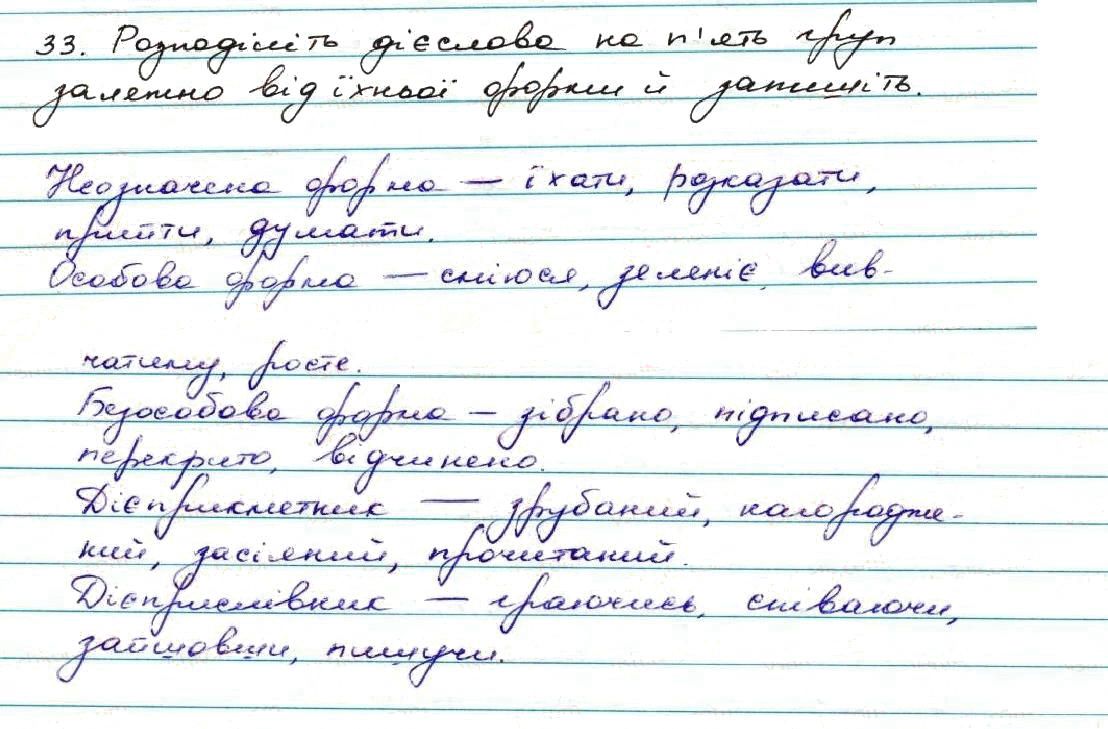 33. Розподіліть дієслова на п'ять груп
залежно від їхньої форми й запишіть.
Неозначена форма — їхати, розказати,
прийти, думати.
Особова форма — сміюся, зеленіє, вив-
чатиму, росте.
Безособова форма — зібрано, підписано,
перекрито, відчинено.
Дієприкметник — зрубаний, нагородже-
ний, засіяний, прочитаний.
Дієприслівник — граючись, співаючи,
зайшовши, пишучи.